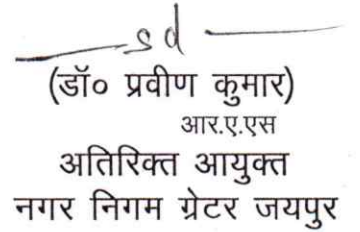 sd
(डॉ० प्रवीण कुमार)
आर.ए.एस
अतिरिक्त आयुक्त
नगर निगम ग्रेटर जयपुर